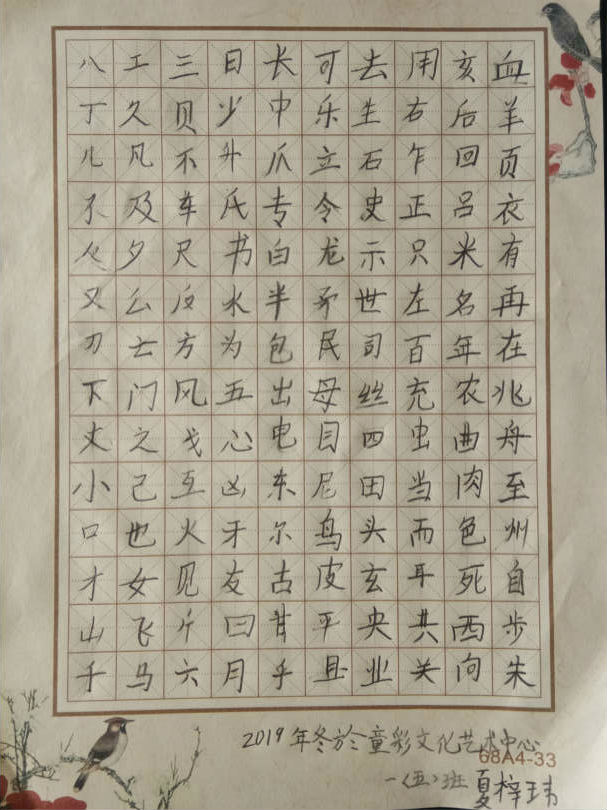 八工三日长可去用亥血
丁久贝少中乐生右后羊
儿凡不升爪立石乍回页
及车氏专令史正吕衣
人夕尺书白龙示只米有
又么反水半矛世左名再
刃士方为包民司百年在
下门风五出母丝充农兆
丈之戈心电目四虫曲舟
小己互凶东尼田当肉至
口也火牙尔鸟头而色州
才女见友古皮玄耳死自
山飞斤曰甘平央共西步
千马六月乎且业关向朱
2019年冬於童彩文化艺术中心
68A4-33
一〈五〉班 夏梓玮